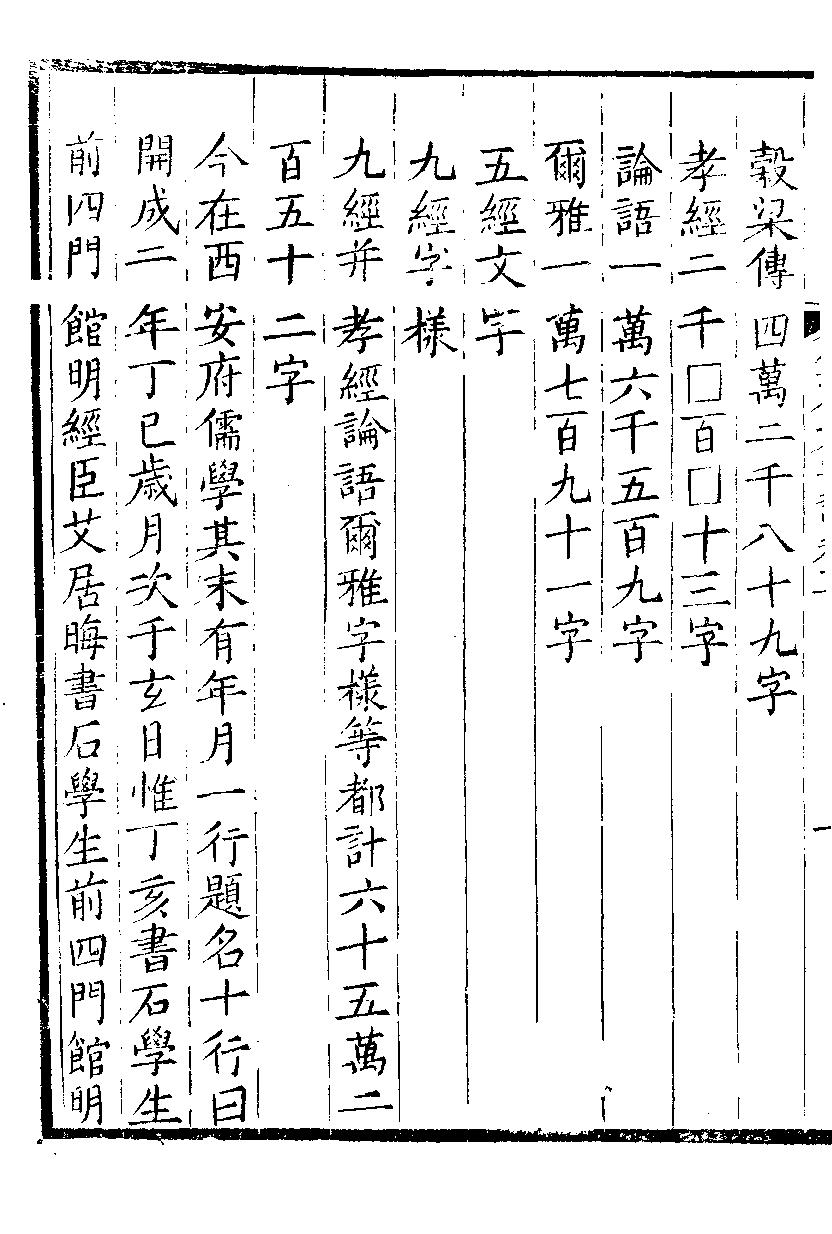 穀梁傳四萬二千八十九字
孝經二千□百□十三字
論語一萬六千五百九字
爾雅一萬七百九十一字
五經文字
九經字樣
九經并孝經論語爾雅字樣等都計六十五萬二
百五十二字
今在西安府儒學其末有年月一行題名十行曰
開成二年丁巳歲月次于玄日惟丁亥書石學生
前四門館明經臣艾居晦書石學生前四門館明